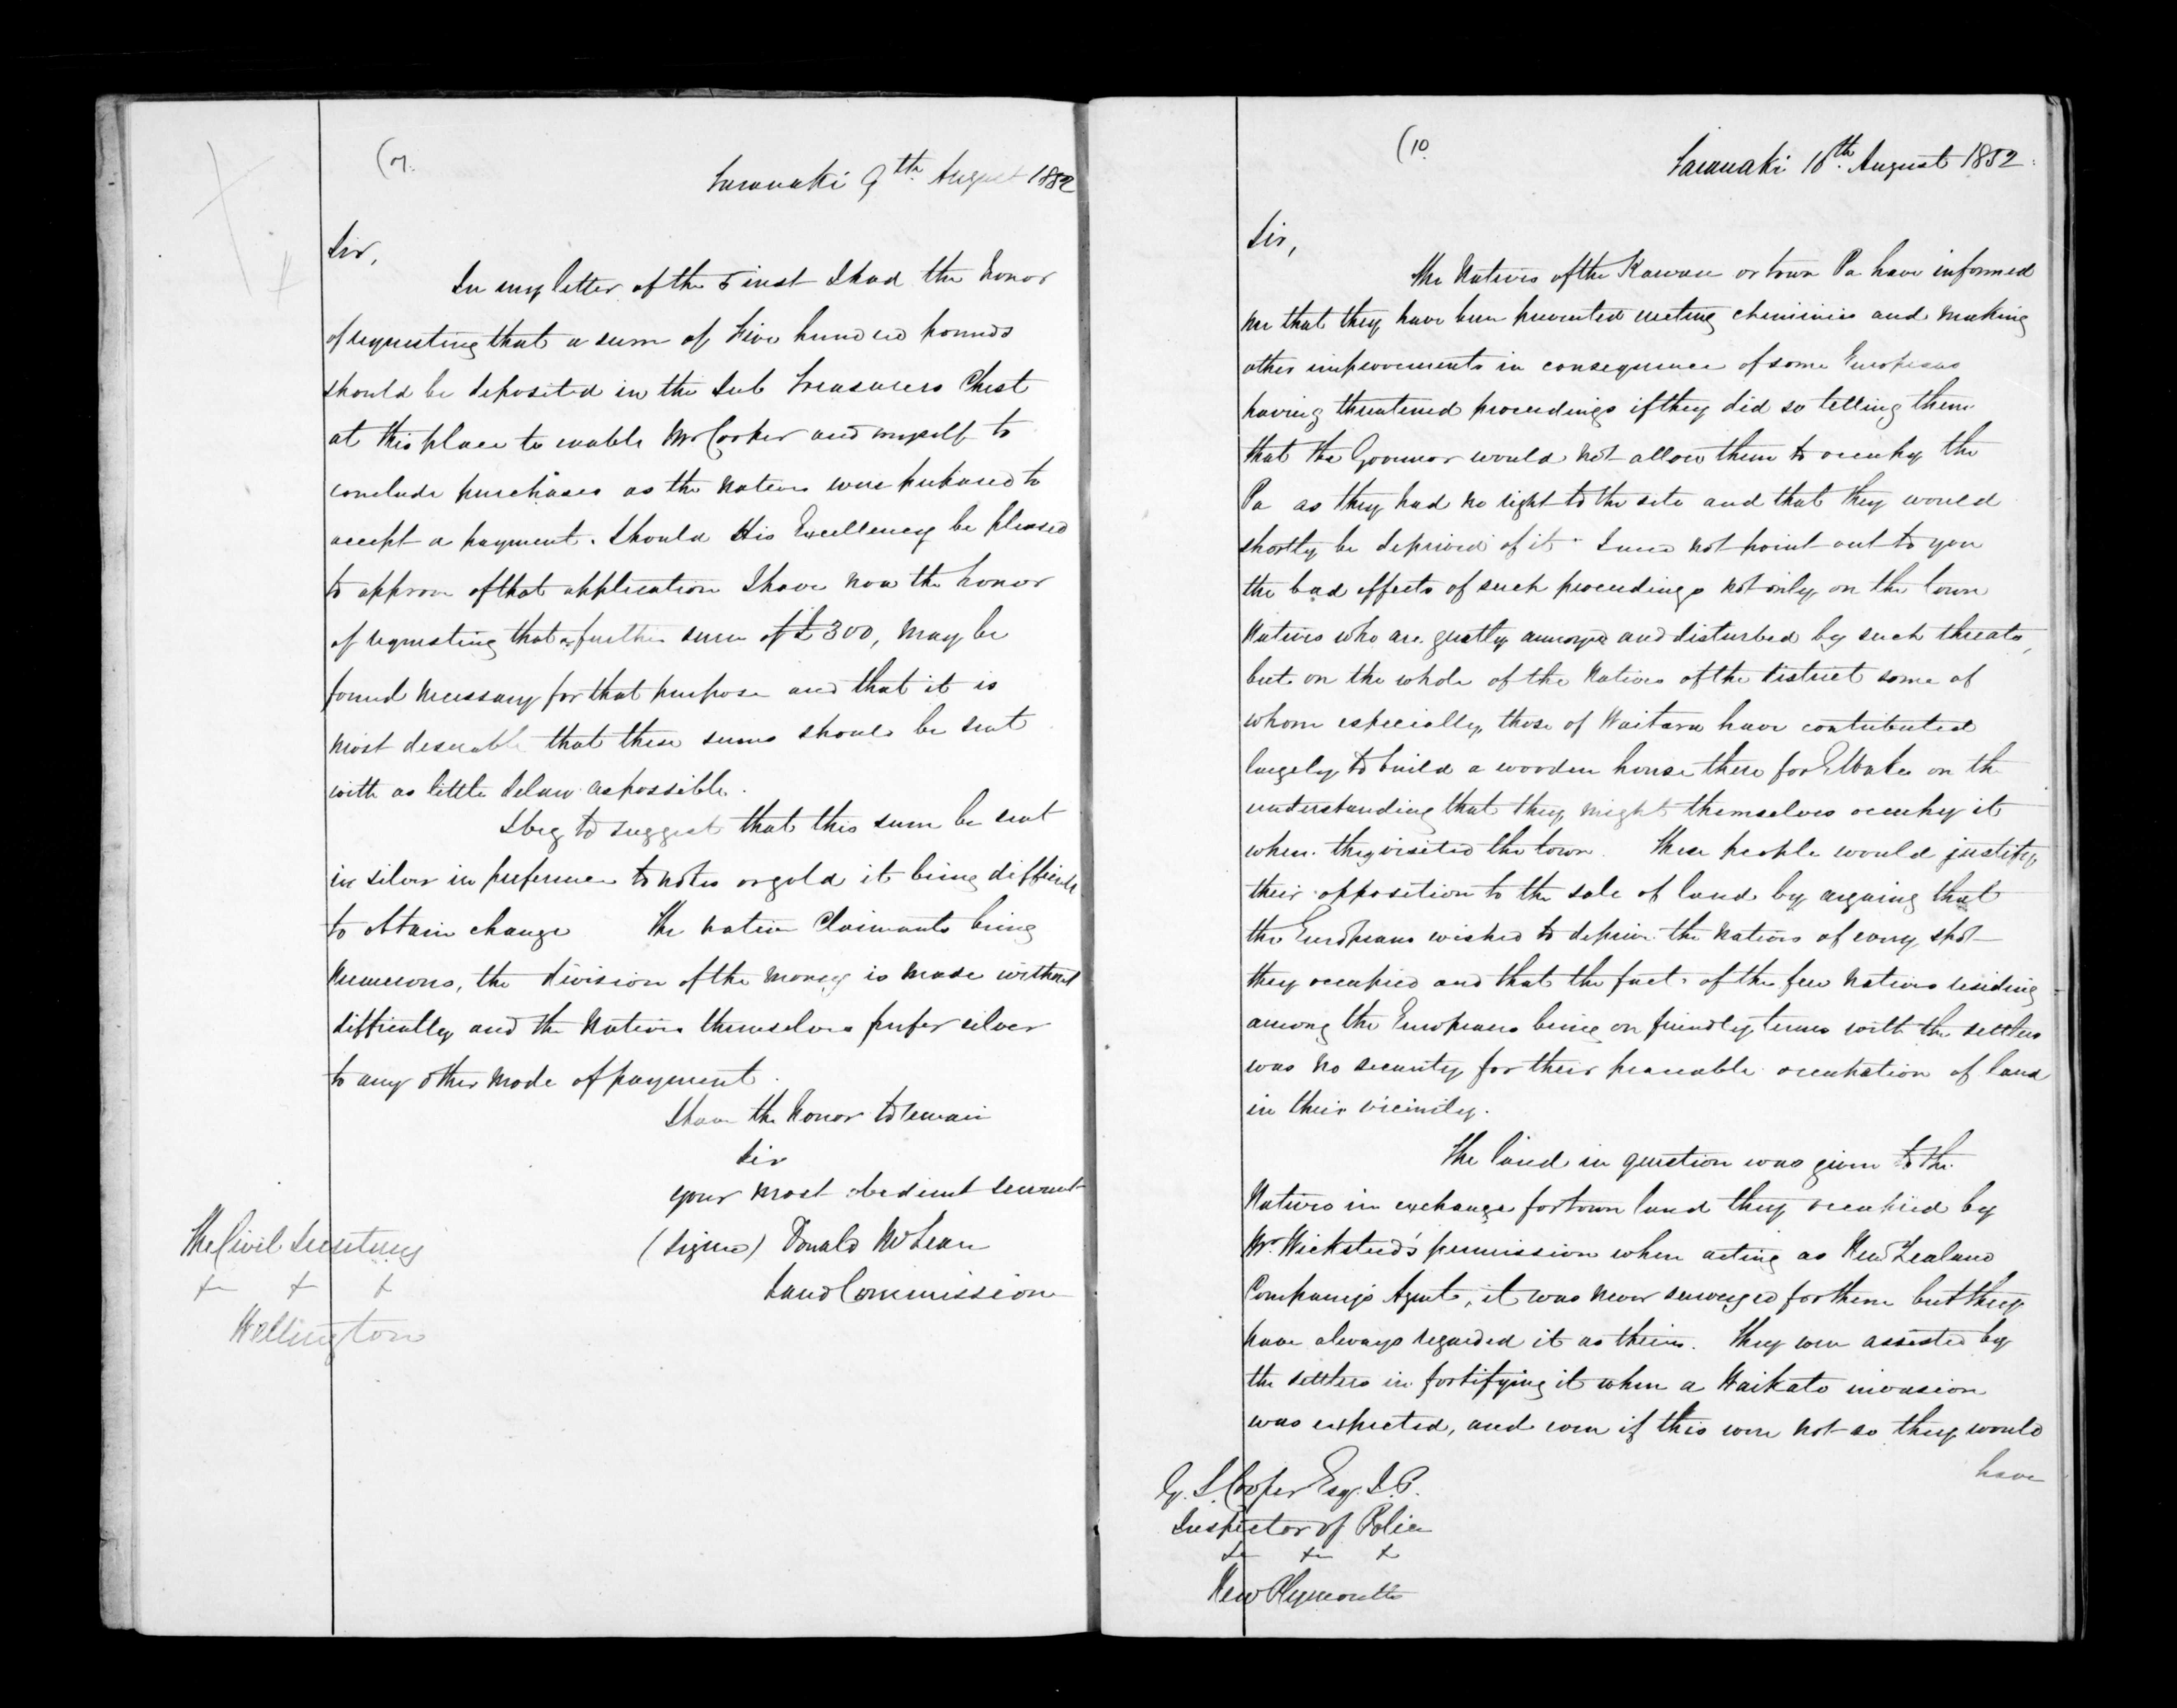 (9.
Taranaki 9th. August 1852
Sir,
In my letter of the 5 inst I had the honor
of requesting that a sum of Five hundred pounds
should be deposited in the Sub Treasurers Chest
at this place to enable Mr Cooper and myself to
conclude purchases as the Natives were prepared to
accept a payment. Should His Excellency be pleased
to approve of that application I have now the honor
of requesting that a further sum of £300, may be
found necessary for that purpose and that it is
most desirable that these sums should be sent
with as little delay as possible.
I beg to suggest that this sum be sent
in silver in preference to notes or gold it being difficult
to obtain change The native Claimants being
numerous, the division of the money is made without
difficulty and the Natives themselves prefer silver
to any other mode of payment.
I have the honor to remain
Sir
your most obedient servant
(signed) Donald McLean
Land Commission
The Civil Secretary
&c &c &c
Wellington
(10.
Taranaki 10th. August 1852.
Sir,
The Natives of the Kawau or town Pa have informed
me that they have been prevented erecting chimnies and making
other improvements in consequence of some Europeans
having threatened proceedings if they did so telling them
that the Governor would not allow them to occupy the
Pa as they had no right to the site and that they would
shortly be deprived of it. I need not point out to you
the bad effects of such proceedings not only on the town
Natives who are greatly annoyed and disturbed by such threats,
but on the whole of the Natives of the district some of
whom especially those of Waitara have contributed
largely to build a wooden house there for E Waka on the
understanding that they might themselves occupy it
when they visited the town. These people would justify
their opposition to the sale of land by arguing that
the Europeans wished to deprive the Natives of every spot
they occupied and that the fact of the few Natives residing
among the Europeans being on friendly terms with the settlers
was no security for their peaceable occupation of land
in their vicinity.
The land in question was given to the
Natives in exchange for town land they occupied by
Mr. Wicksteed's permission when acting as New Zealand
Company's Agent, it was never surveyed for them but they
have always regarded it as theirs. They were assisted by
the settlers in fortifying it when a Waikato invasion
was expected, and even if this were not so they would
have
G. S. Cooper Esq. J.P.
Inspector of Police
&c &c &c
New Plymouth